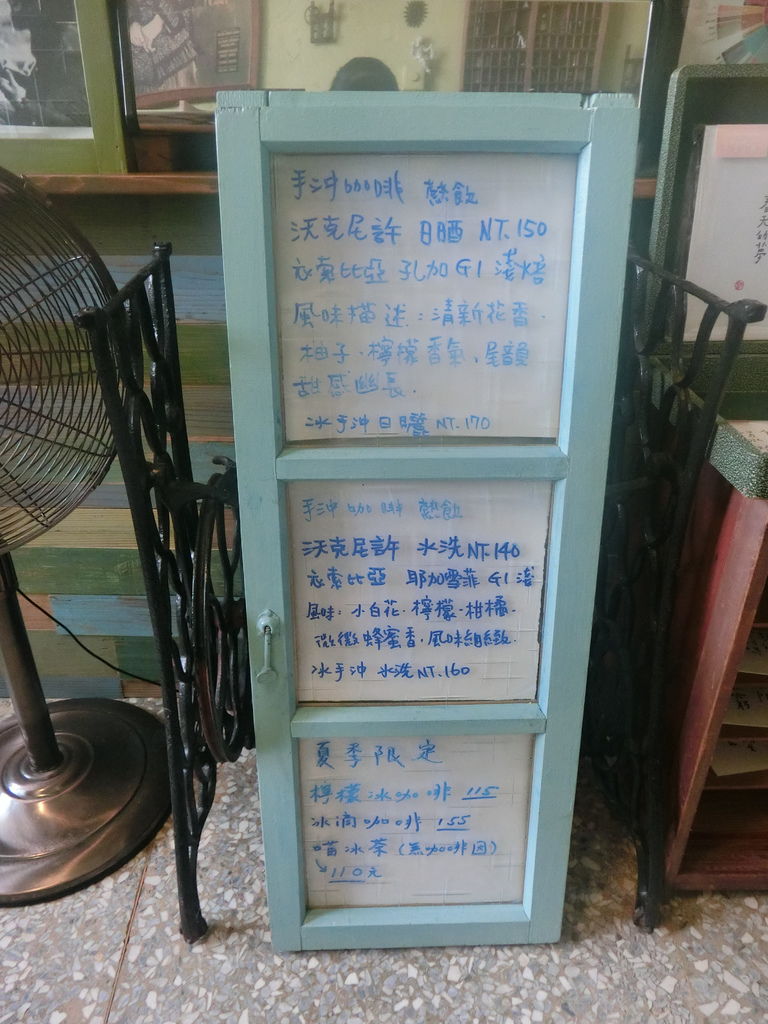 手沖咖啡 熱飲
沃克尼許 日晒 NT.150
衣索比亞 孔加 G1 淺焙
風味描述：清新花香.
柚子、檸檬香氣、尾韻
甜感幽長.
冰手沖 日曬 NT.170
手沖咖啡 熱飲
沃克尼許 水洗 NT.140
衣索比亞 耶加雪菲 G1 淺
風味：小白花.檸檬.柑橘.
微微蜂蜜香.風味細緻.
冰手沖 水洗 NT.160
夏季限定
檸檬冰咖啡 115
冰滴咖啡 155
喵冰茶(無咖啡因)
↘110元
春天的夢